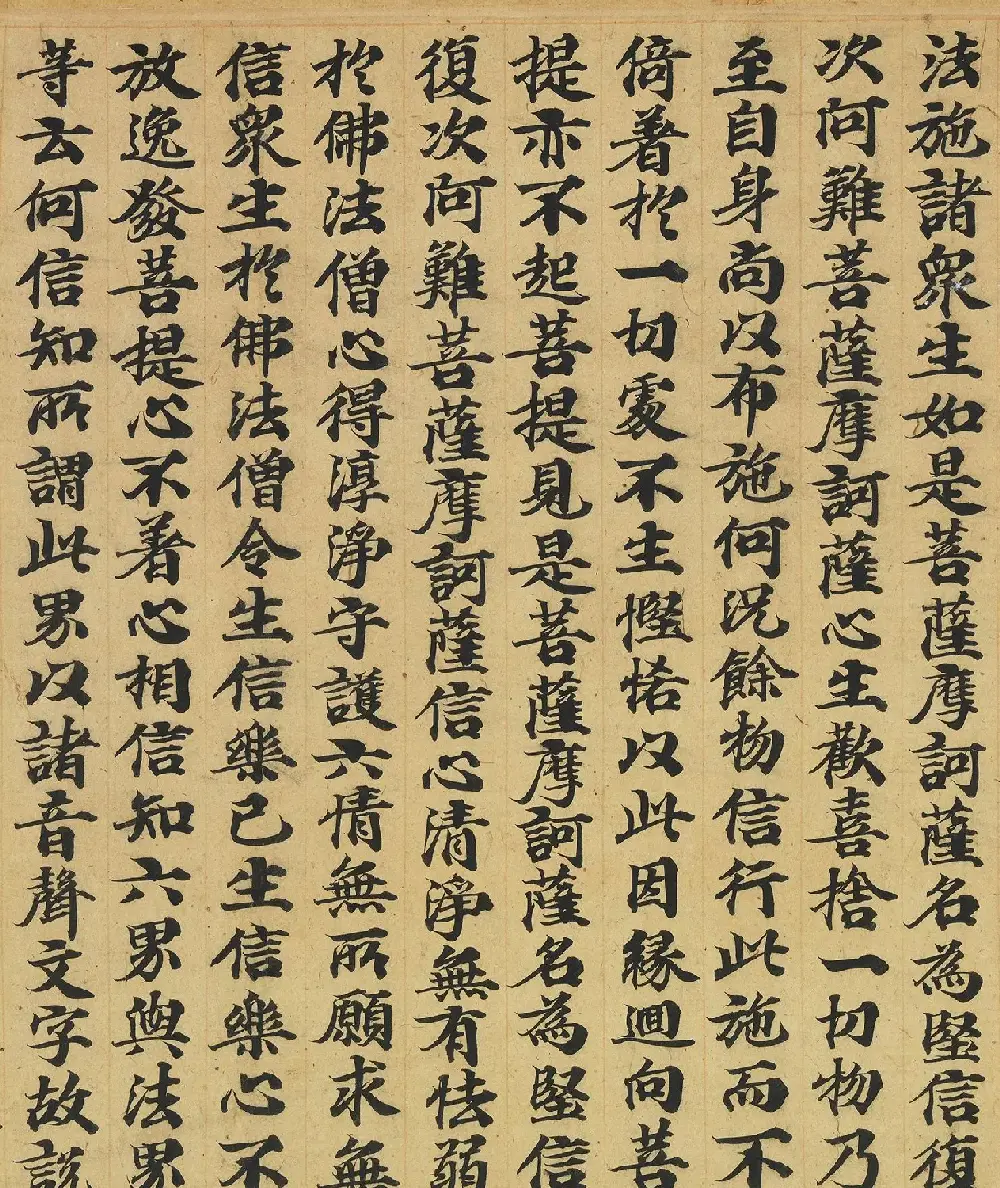 法施諸衆生如是菩薩摩訶薩名為堅信復
次阿難菩薩摩訶薩心生歡喜捨一切物乃
至自身尚以布施何況餘物信行此施而不
倚著於一切處不生慳悋以此因緣迴向菩
提亦不起菩提見是菩薩摩訶薩名為堅信
復次阿難菩薩摩訶薩信心清淨無有怯弱
於佛法僧心得淳淨守護六情無所願求無
信衆生於佛法僧令生信樂已生信樂心不
放逸發菩提心不著心相信知六界與法界
等云何信知所謂此界以諸音聲文字故說